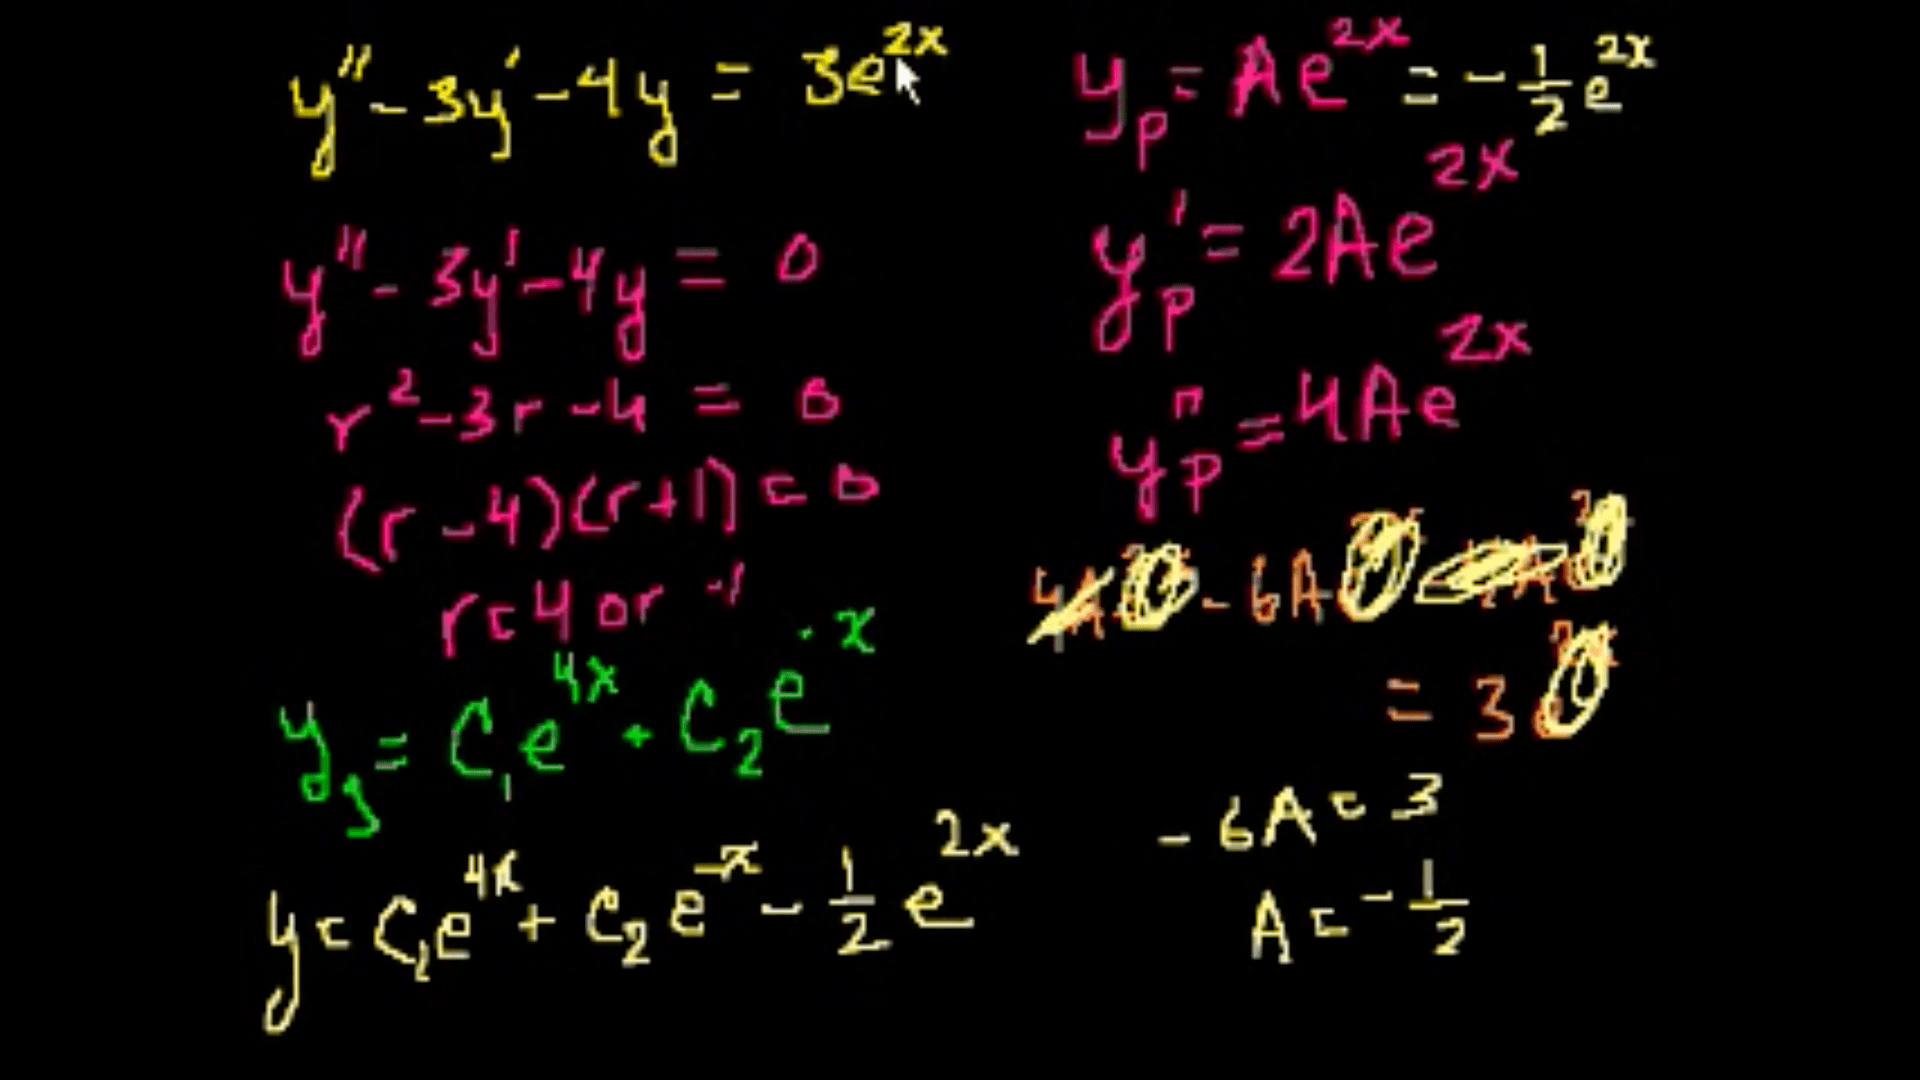 y'' - 3y' - 4y = 3e^{2x}
y'' - 3y' - 4y = 0
r² - 3r - 4 = 0
(r - 4)(r + 1) = 0
r = 4 or -1
y_g = C₁e^{4x} + C₂e^{-x}
y = C₁e^{4x} + C₂e^{-x} - 1/2 e^{2x}
y_p = Ae^{2x} = -1/2 e^{2x}
y_p' = 2Ae^{2x}
y_p'' = 4Ae^{2x}
4A - 6A
= 3
-6A = 3
A = -1/2